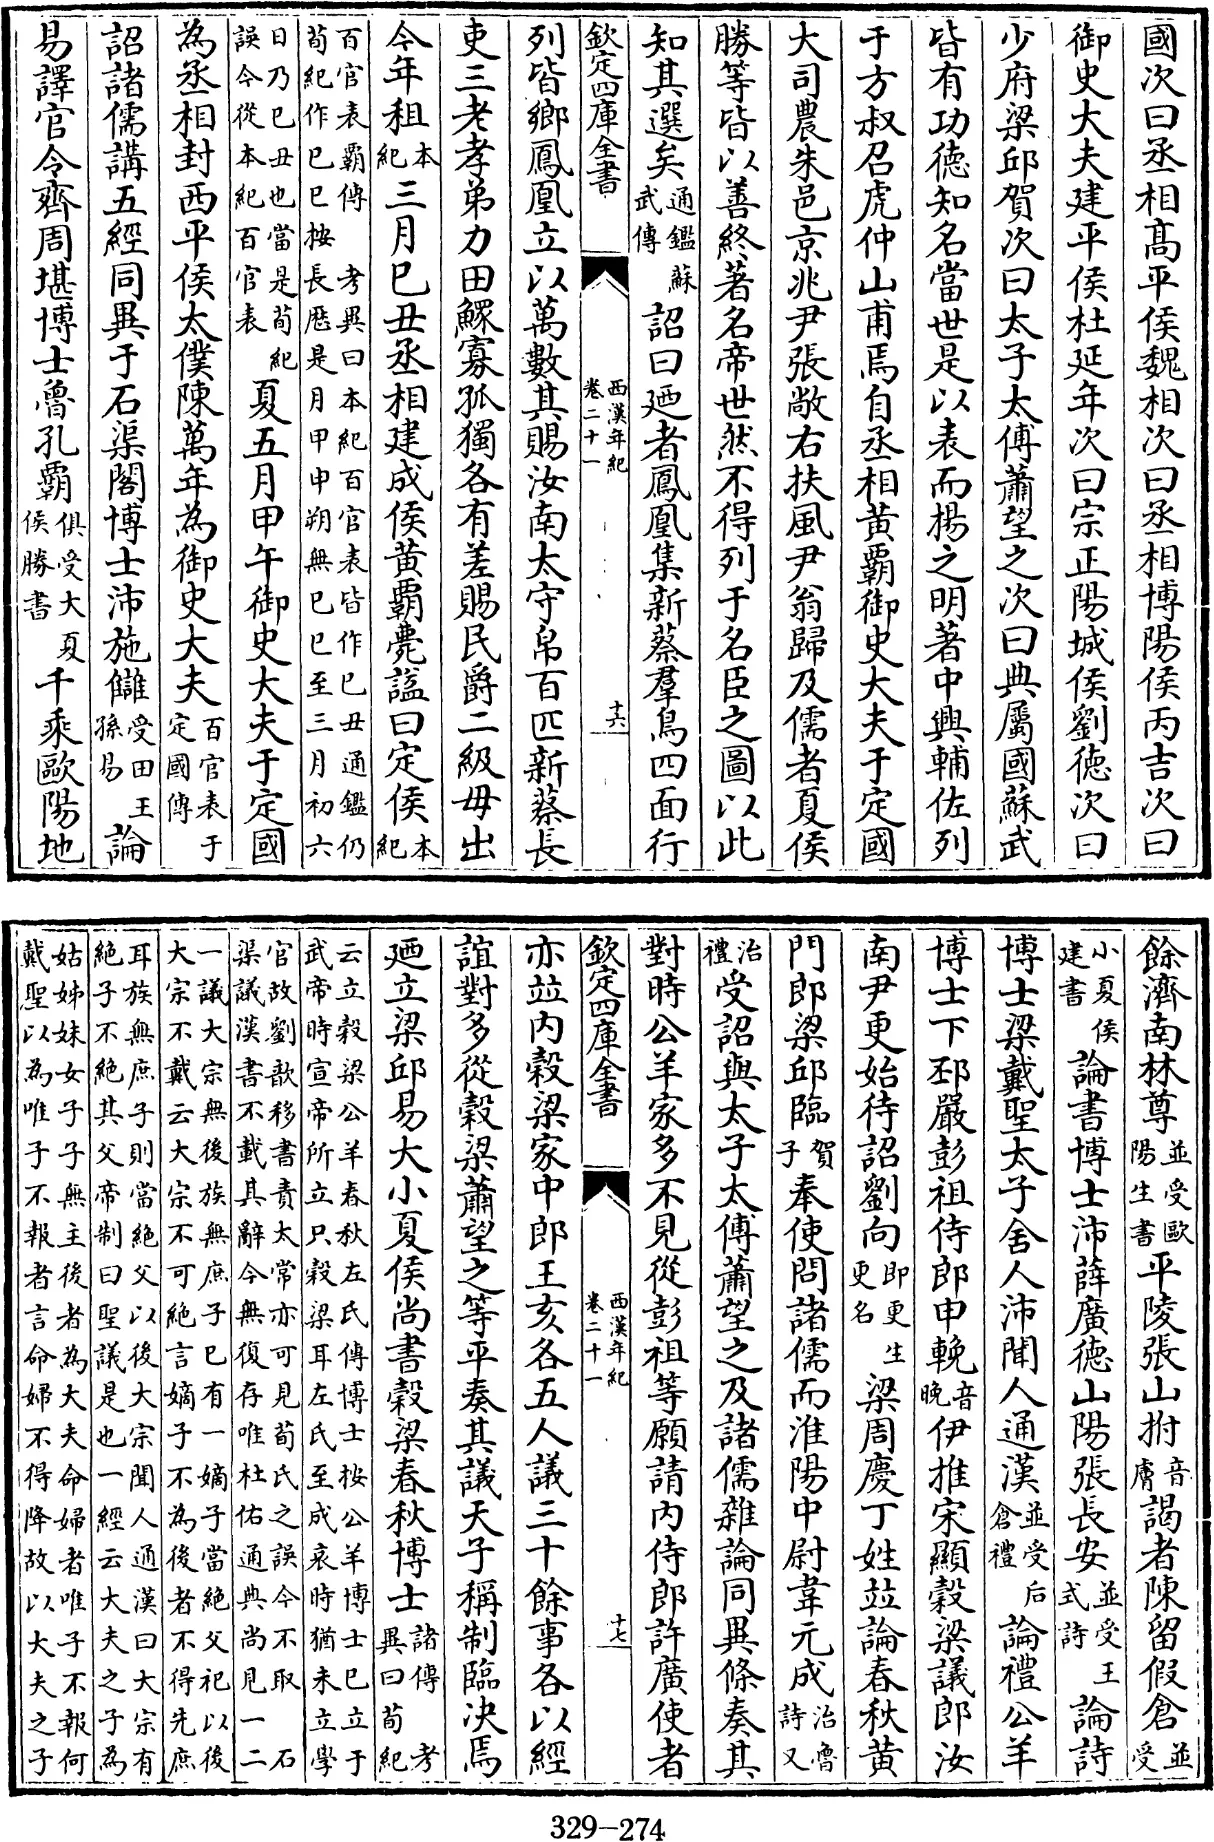 國次曰丞相髙平侯魏相次曰丞相博陽侯丙吉次曰
御史大夫建平侯杜延年次曰宗正陽城侯劉徳次曰
少府梁邱賀次曰太子太傅蕭望之次曰典屬國蘇武
皆有功德知名當世是以表而揚之明著中興輔佐列
于方叔召虎仲山甫焉自丞相黄霸御史大夫于定國
大司農朱邑京兆尹張敞右扶風尹翁歸及儒者夏侯
勝等皆以善終著名帝世然不得列于名臣之圖以此
知其選矣通鑑蘇武傳詔曰廼者鳳凰集新蔡羣鳥四面行
欽定四庫全書 西漢年紀卷二十一 十六
列皆鄉鳳凰立以萬數其賜汝南太守帛百匹新蔡長
吏三老孝弟力田鰥寡孤獨各有差賜民爵二級毋出
今年租本紀三月已丑丞相建成侯黄霸薨諡曰定侯本紀
百官表霸傳考異曰本紀百官表皆作已丑通鑑仍
荀紀作已巳按長厯是月甲申朔無已巳至三月初六
日乃已丑也當是荀紀
誤今從本紀百官表夏五月甲午御史大夫于定國
為丞相封西平侯太僕陳萬年為御史大夫百官表于定國傳
詔諸儒講五經同異于石渠閣博士沛施讎受田王孫易論
易譯官令齊周堪博士魯孔霸俱受大夏侯勝書千乘歐陽地
餘濟南林尊並受歐陽生書平陵張山拊音膚謁者陳留假倉並受
小夏侯建書論書博士沛薛廣德山陽張長安並受王式詩論詩
博士梁戴聖太子舍人沛聞人通漢並受后倉禮論禮公羊
博士下邳嚴彭祖侍郎申輓音晚伊推宋顯穀梁議郎汝
南尹更始待詔劉向即更生更名梁周慶丁姓竝論春秋黄
門郎梁邱臨賀子奉使問諸儒而淮陽中尉韋元成治魯詩又
治禮受詔與太子太傅蕭望之及諸儒雜論同異條奏其
對時公羊家多不見從彭祖等願請内侍郎許廣使者
欽定四庫全書 西漢年紀卷二十一 十七
亦竝内穀梁家中郎王亥各五人議三十餘事各以經
誼對多從穀梁蕭望之等平奏其議天子稱制臨決焉
廼立梁邱易大小夏侯尚書穀梁春秋博士諸傳考異曰荀紀
云立穀梁公羊春秋左氏傳博士按公羊博士已立于
武帝時宣帝所立只穀梁耳左氏至成哀時猶未立學
官故劉歆移書責太常亦可見荀氏之誤今不取 石
渠議漢書不載其辭今無復存唯杜佑通典尚見一二
一議大宗無後族無庶子已有一嫡子當絶父祀以後
大宗不戴云大宗不可絶言嫡子不為後者不得先庶
耳族無庶子則當絶父以後大宗聞人通漢曰大宗有
絶子不絶其父帝制曰聖議是也一經云大夫之子為
姑姊妹女子子無主後者為大夫命婦者唯子不報何
戴聖以為唯子不報者言命婦不得降故以大夫之子
329-274